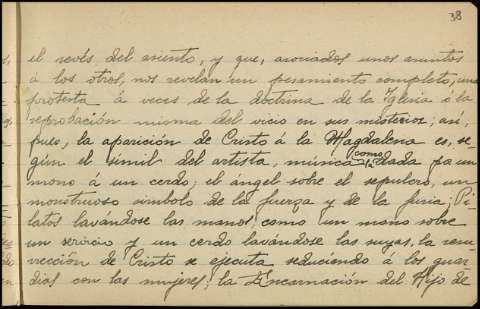 38
el revés del asiento, y que, asociados unos asuntos
á los otros, nos revelan un pensamiento completo, una
protesta á veces de la doctrina de la Iglesia ó la
reprobación misma del vicio en sus misterios; así,
pues, la aparición de Cristo á la Magdalena es, se-
gún el símil del artista, música como dada pa un
mono a un cerdo; el ángel sobre el sepulcro, un
monstruoso símbolo de la fuerza y de la furia; Pi-
latos lavándose las manos, como un mono sobre
un servicio y un cerdo lavándose las suyas, la resu-
rrección de Cristo se ejecuta seduciendo á los guar-
dias con las mujeres; la Encarnación del Hijo de